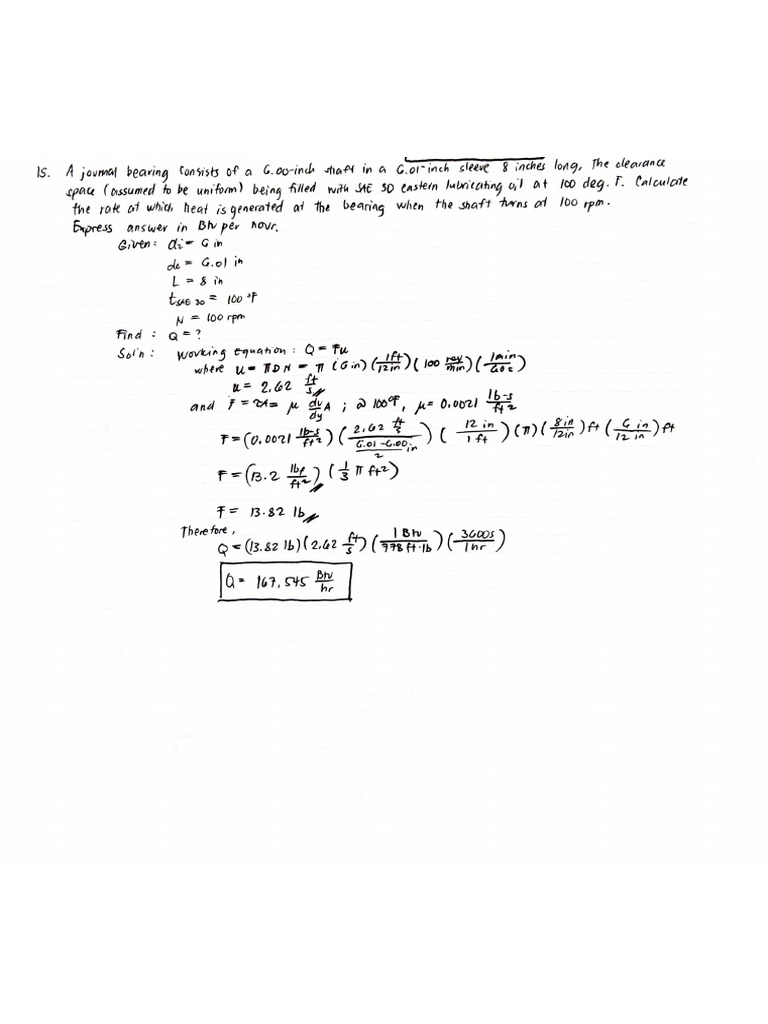 15. A journal bearing consists of a 6.00-inch shaft in a 6.01-inch sleeve 8 inches long, The clearance
space (assumed to be uniform) being filled with SAE 30 eastern lubricating oil at 100 deg. F. Calculate
the rate at which heat is generated at the bearing when the shaft turns at 100 rpm.
Express answer in Btu per hour.
Given: di = 6 in
do = 6.01 in
L = 8 in
tSAE 30 = 100 °F
N = 100 rpm
Find : Q = ?
Sol'n : Working Equation : Q = Fu
where u = πDN = π (6 in) (1ft/12in) (100 rev/min) (1min/60s)
u = 2.62 ft/s
and F = τA = μ dv/dy A ; @ 100°F, μ = 0.0021 lb-s/ft²
F = (0.0021 lb-s/ft²) (2.62 ft/s / (6.01-6.00/2 in)) (12 in/1 ft) (π) (8in/12in) ft (6 in/12 in) ft
F = (13.2 lbf/ft²) (1/3 π ft²)
F = 13.82 lb
Therefore,
Q = (13.82 lb) (2.62 ft/s) (1 Btu/778 ft·lb) (3600s/1hr)
Q = 167.545 Btu/hr